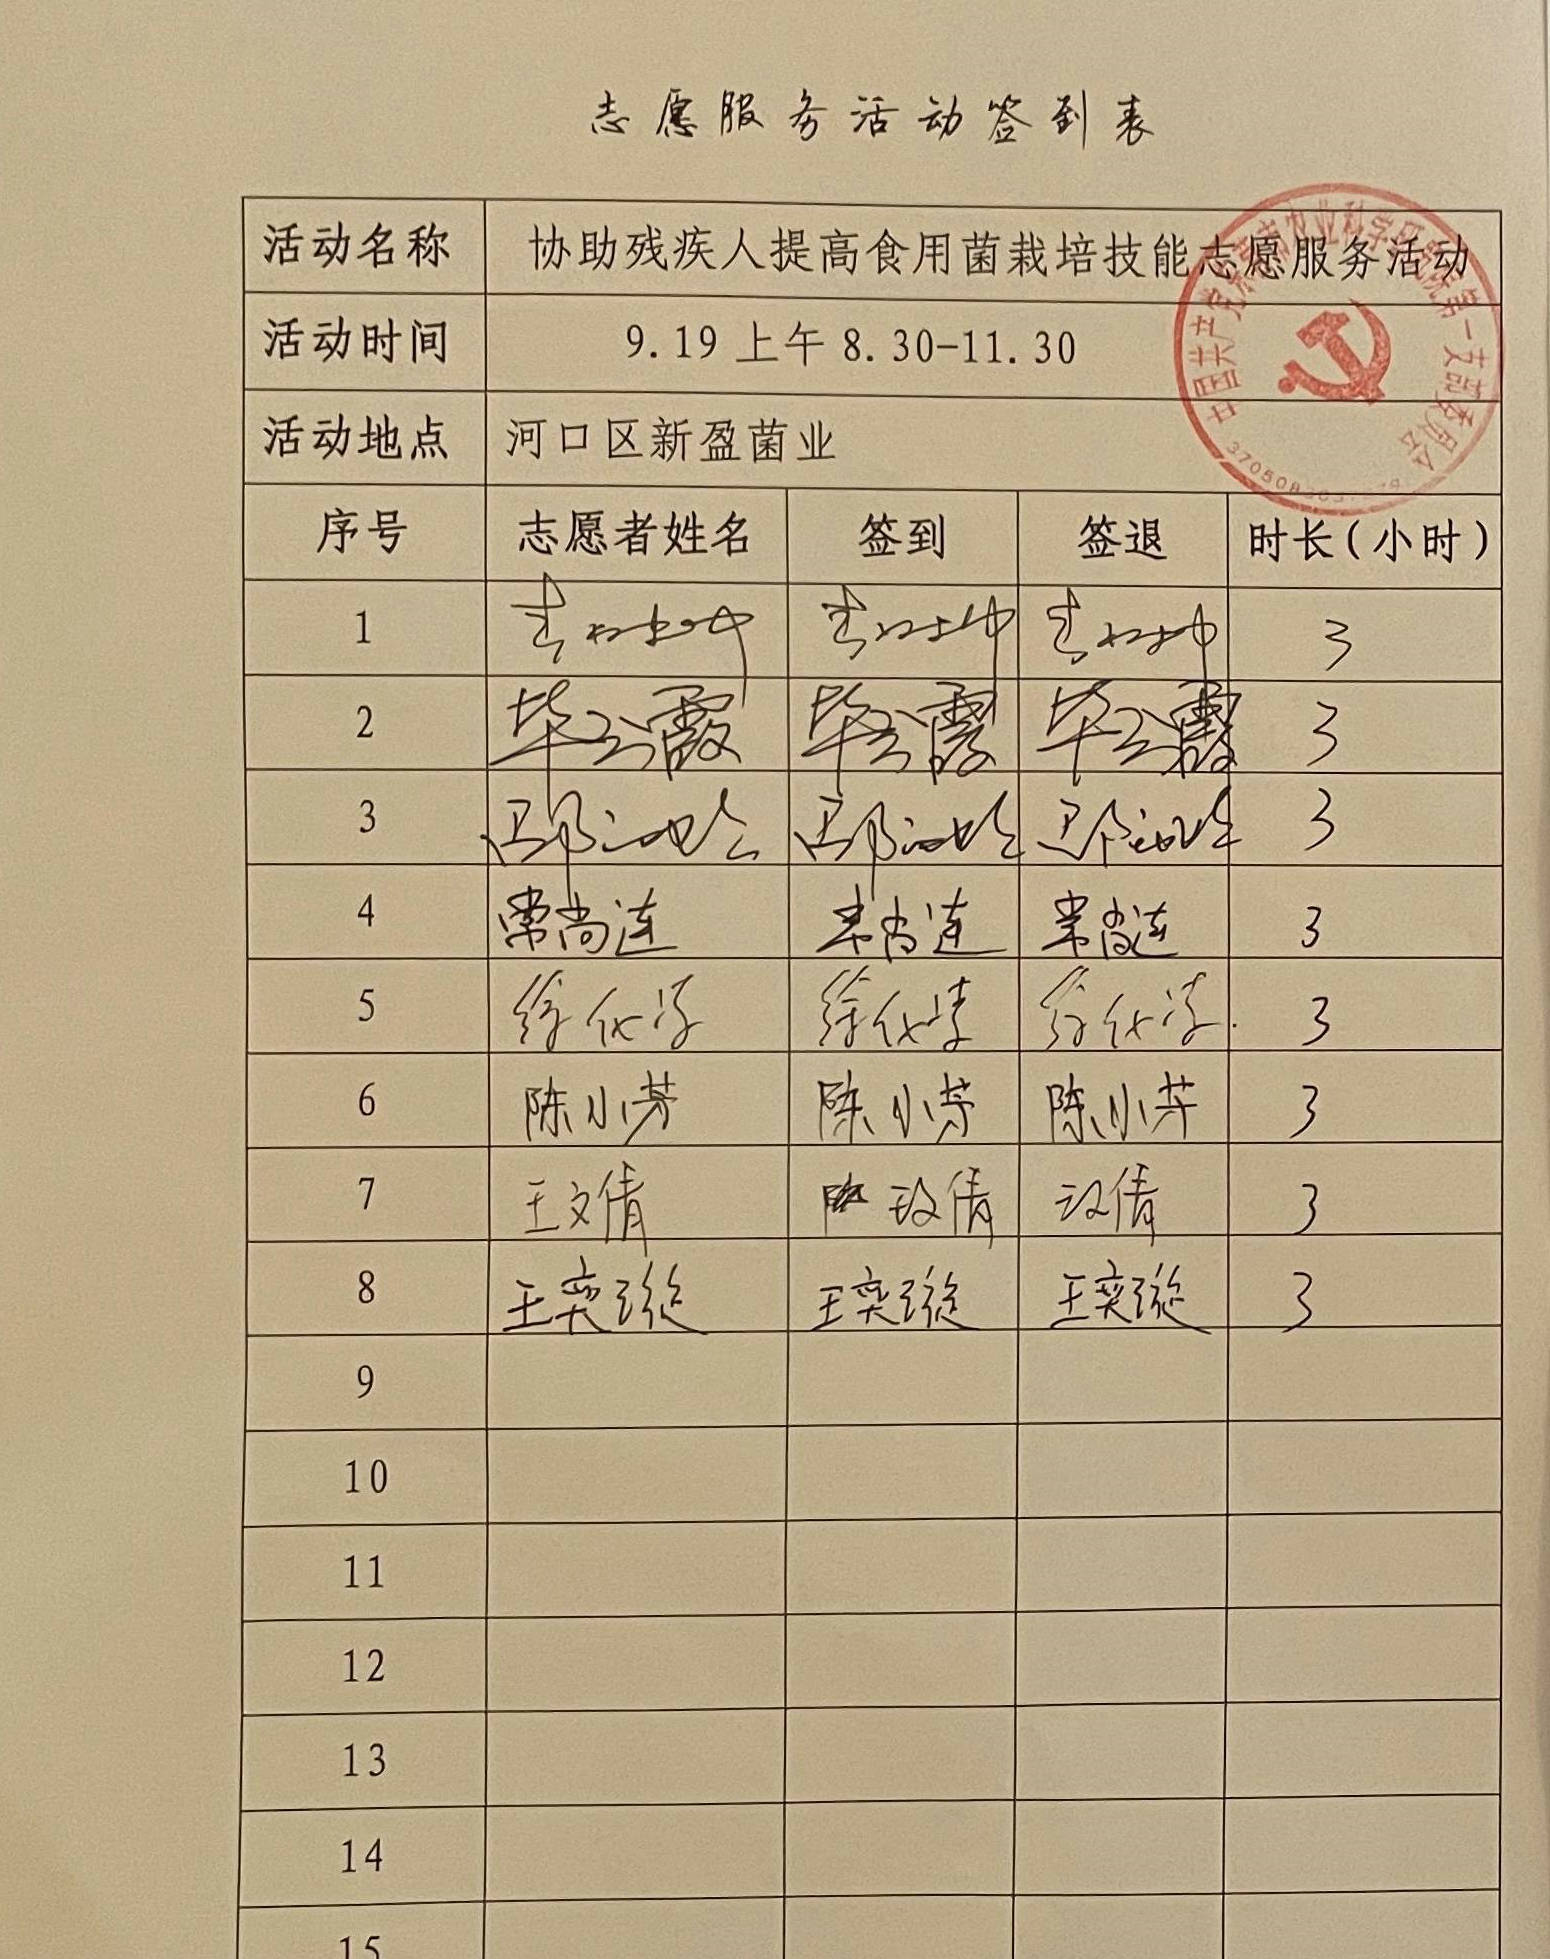 志愿服务活动签到表
活动名称 协助残疾人提高食用菌栽培技能志愿服务活动
活动时间 9.19 上午 8.30-11.30
活动地点 河口区新盈菌业
序号 志愿者姓名 签到 签退 时长(小时)
1 3
2 毕云霞 毕云霞 毕云霞 3
3 3
4 常尚连 常尚连 常尚连 3
5 徐化凌 徐化凌 徐化凌 3
6 陈小芳 陈小芳 陈小芳 3
7 王文倩 3
8 王奕璇 王奕璇 王奕璇 3
9
10
11
12
13
14
15